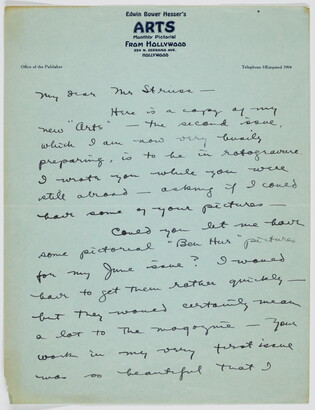 Edwin Bower Hesser's
ARTS
Monthly Pictorial
FROM HOLLYWOOD
HOLLYWOOD
Office of the Publisher
Telephone HEmpstead
My dear Mr Struss —
Here is a copy of my
new "Arts" — the second issue,
which I am now very busily
preparing, is to be in rotogravure.
I wrote you while you were
still abroad — asking if I could
have some of your pictures —
Could you let me have
some pictorial "Ben Hur" pictures
for my June issue? I would
have to get them rather quickly —
but they would certainly mean
a lot to the magazine — Your
work in my very first issue
was so beautiful that I